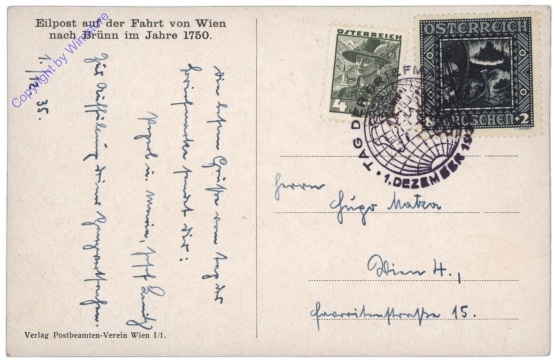 Eilpost auf der Fahrt von Wien
nach Brünn im Jahre 1750.
Copyright by Winstore
1./12. 35.
Die besten Grüße vom Tag der
Briefmarke sendet dir:
Zur Auffüllung deiner
Verlag Postbeamten-Verein Wien I/1.
ÖSTERREICH
4
ÖSTERREICH
+2
GROSCHEN
TAG DER BRIEFM
1. DEZEMBER 193
Herrn
Hugo Matza
Wien 4.,
Favoritenstraße 15.